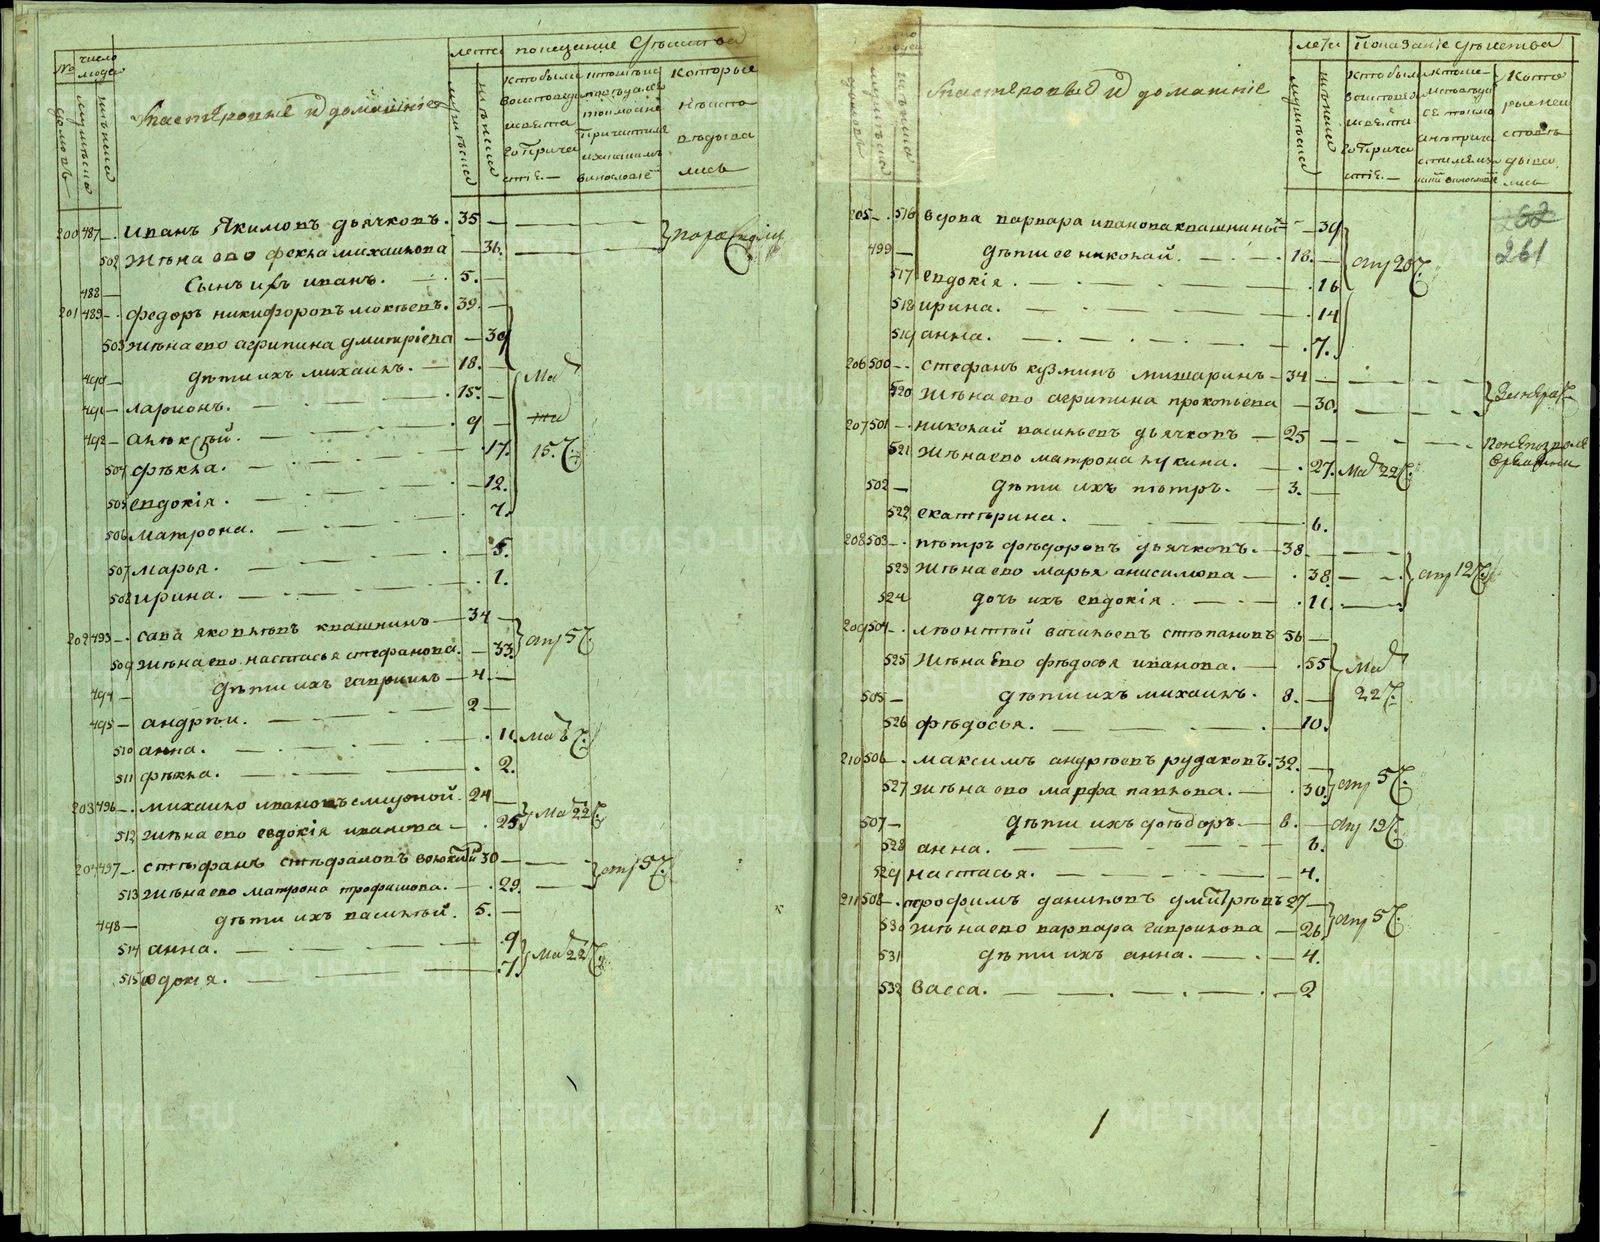 №
число людей
домовъ
мужеска
женска
Мастеровые и домашніе
лета
мужеска
женска
Показание Действа
кто были во исповеди и святаго причастіе. —
которые не исповедывались
200 487 Иванъ Якимовъ дьячковъ. 35
502 Жена его фекла михайлова 36.
488 Сынъ ихъ иванъ. 5.
201 489 федоръ никифоровъ мокеевъ. 39.
503 Жена его агрипина дмитріева 39
490 дети ихъ михаилъ. 18. Маія
491 ларионъ. 15.
492 алексей. 9
504 фекла. 17. 15.
505 евдокія. 12.
506 матрона. 7.
507 марья. 5.
508 ирина. 1.
202 493 сава яковлевъ квашнинъ 34
509 жена его настасья стефанова. 33. апр 5
494 дети ихъ гаврилъ 4
495 андреи. 2
510 анна. 11. Маія
511 фекла. 2.
203 496 михайло ивановъ смирной. 24
512 жена его евдокія иванова 25 Маія 22
204 497 стефанъ стефановъ 30 апр 5
513 жена его матрона трофимова. 29.
498 дети ихъ василей. 5.
514 анна. 9
515 авдокія. 7. Маія 22
Мастеровые и домашніе
лета
мужеска
женска
Показаніе действа
кто были во исповеди и святаго причастіе. —
которые неисповедывались
262
261
205 516 вдова варвара иванова квашнины 39
499 дети ее николай. 18. апр 20
517 евдокія. 16
518 ирина. 14
519 анна. 7.
206 500 стефанъ кузминъ мишаринъ 34
520 жена его агрипина прокопьева 30.
207 501 николай васильевъ дьячковъ 25
521 жена его матрона лукина. 27. Маія 22
502 дети ихъ петръ. 3.
522 екатерина. 6.
208 503 петръ федоровъ дьячковъ. 38
523 жена его марья анисимова 38. апр 12
524 дочь ихъ евдокія 11.
209 504 леонтей васильевъ степановъ 56
525 жена его федосья иванова. 55 Маія
505 дети ихъ михаилъ. 8. 22
526 федосья. 10.
210 506 максимъ андреевъ рудаковъ. 32.
527 жена его марфа павлова. 30. апр 5
507 дети ихъ федоръ 8. апр 12
528 анна. 6.
529 настасья. 4.
211 508 трофимъ даниловъ дмитревъ 27
530 жена его варвара гаврилова 26. апр 5
531 дети ихъ анна. 4.
532 васса. 2
METRIKI.GASO-URAL.RU